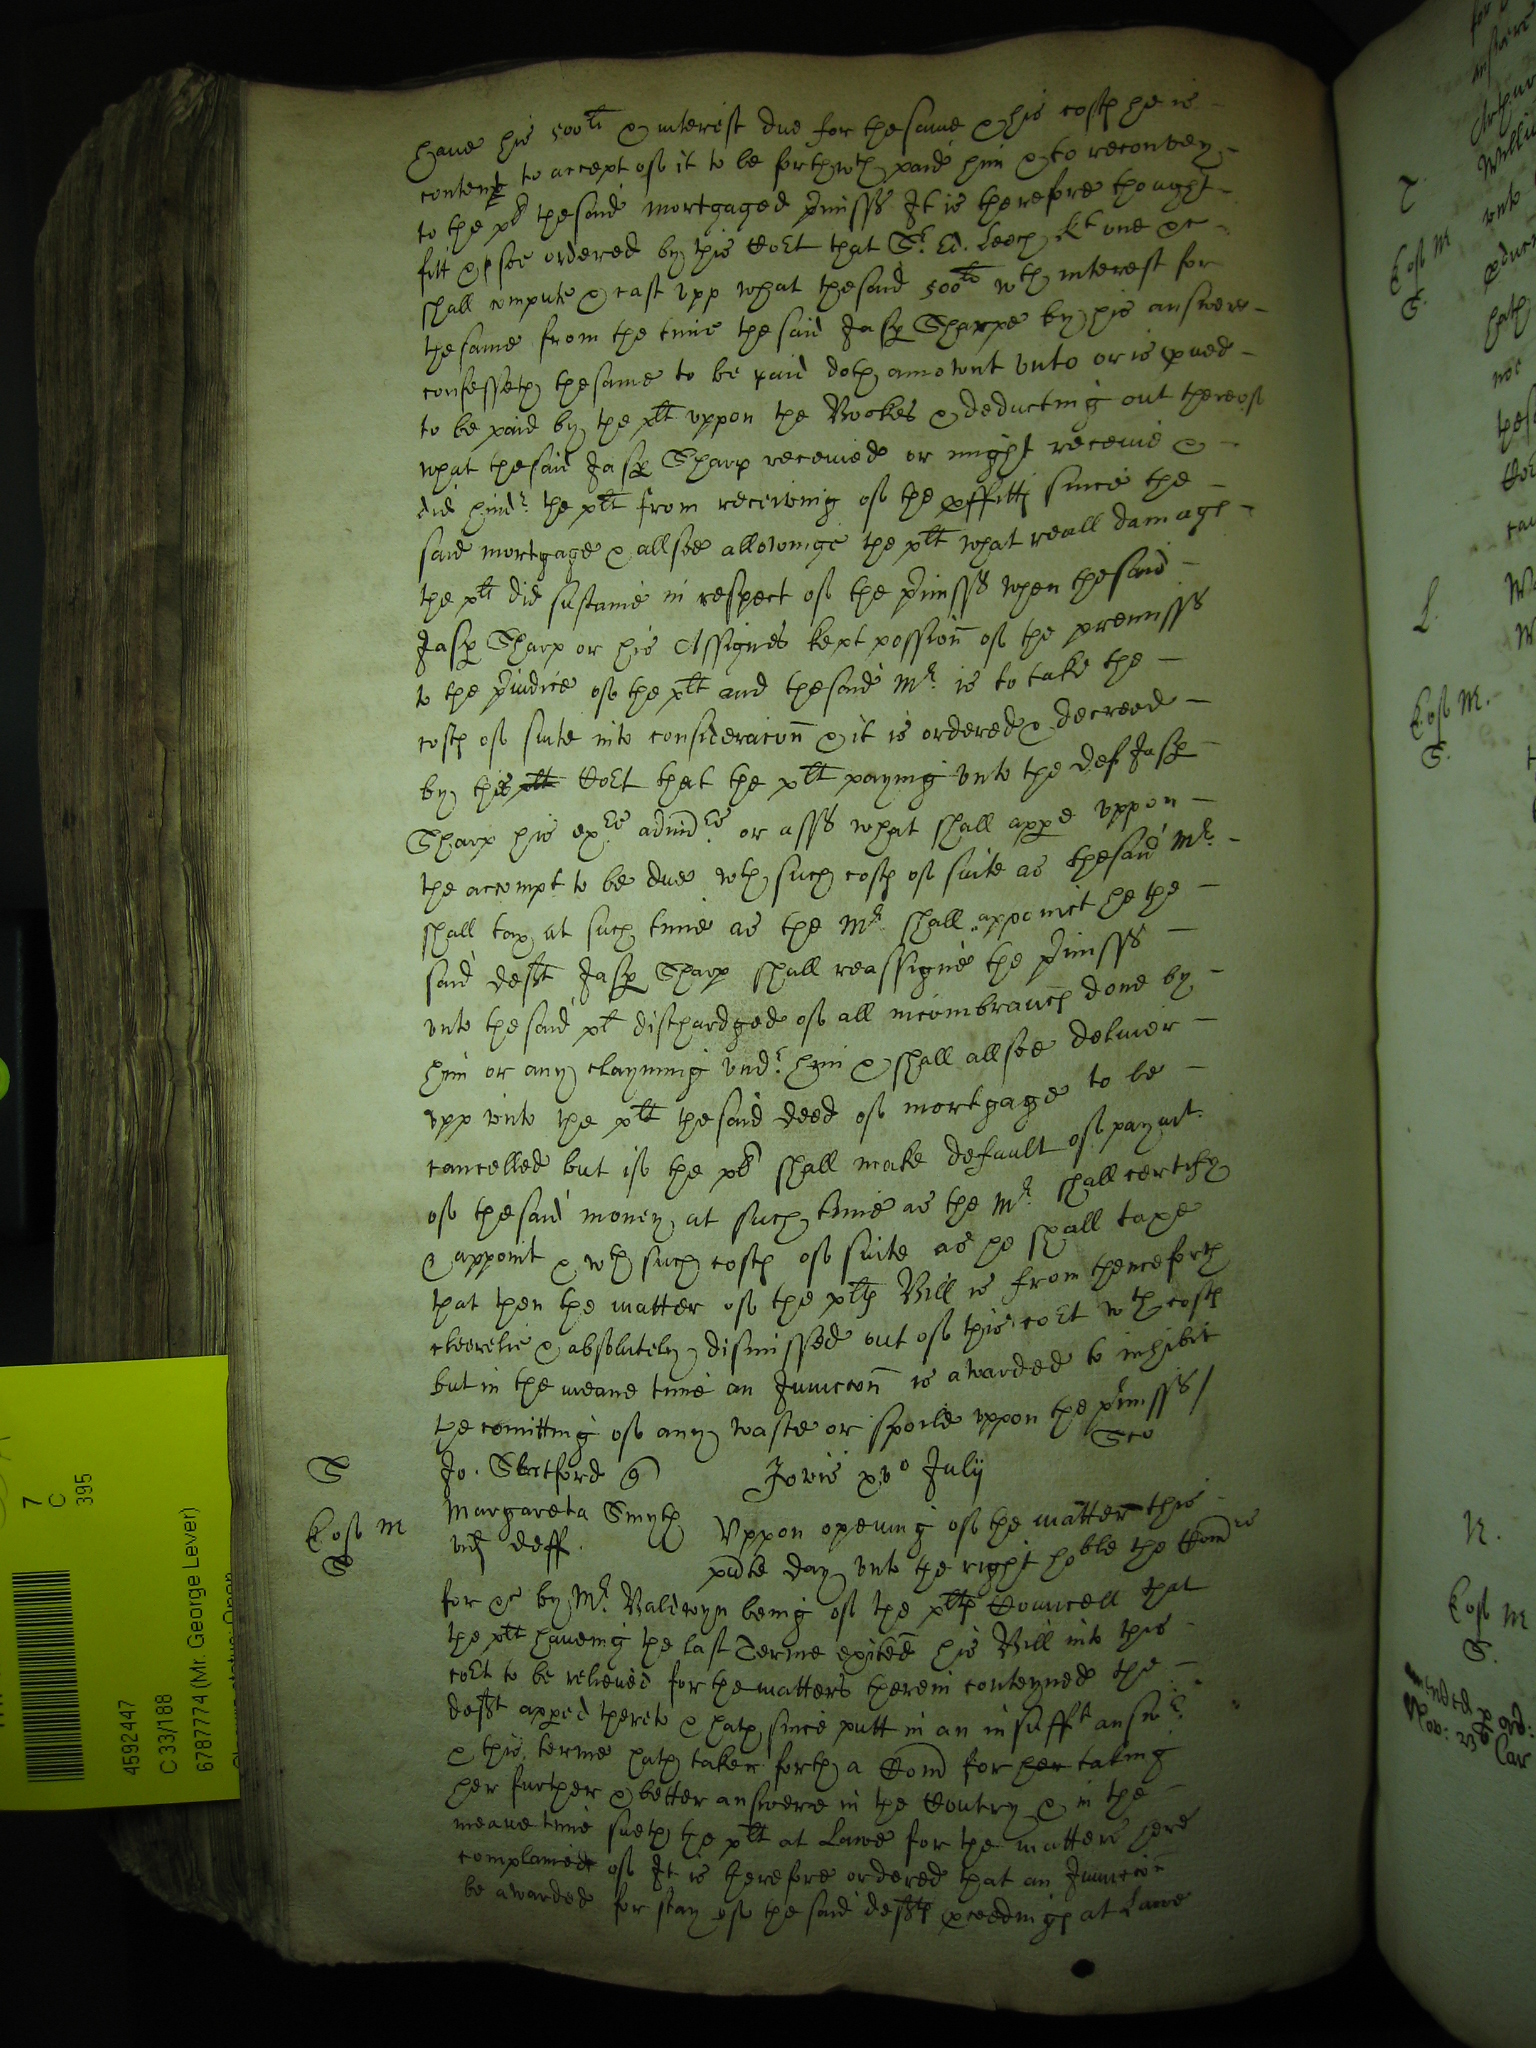 haue his 500li & interest due for thesame & his costs he is
content to accept of it to be forthwth paid him & to reconvey
to the plt thesaid mortgaged p'misss It is therefore thought
fitt & soe ordered by this Cort that Sr. Ed. Leech kt one &c
shall compute & cast vpp what thesaid 500li wth interest for
thesame from the time the said Jasp Sharpe by his answere
confesseth thesame to be paid doth amount vnto or is pued
to be paid by the plt vppon the Bookes & deducting out thereof
what thesaid Jasp Sharp receiued or might receiue &
did hindr the plt from receiving of the pffitts since the
said mortgage & allsoe allowinge the plt what reall damage
the plt did sustaine in respect of the p'misss when thesaid
Jasp Sharp or his Assignes kept possion of the premisss
to the p'iudice of the plt and thesaid Mr. is to take the
costs of suite into consideracon & it is ordered & decreed
by this plt Cort that the plt paying vnto the def Jasp
Sharp his exrs admrs or asss what shall appe vppon
the accompt to be due wth such costs of suite as thesaid Mr.
shall tax at such time as the Mr shall appoinct he the
said deft Jasp Sharp shall reassigne the p'misss
vnto thesaid plt dischardged of all incombraucs done by
him or any clayming vndr him & shall allsoe deliuer
vpp vnto the plt thesaid deed of mortgage to be
cancelled but if the plt shall make default of paymt.
of thesaid money at such time as the Mr. shall certify
& appoint & wth such costs of suite as he shall taxe
that then the matter of the plts Bill is from thenceforth
cleerelie & absolutely dismissed out of this cort wth costs
but in the meane time an Iniuccon is awarded to inhibit
the comitting of any waste or spoile vppon the p'misss /
S
Jo. Stratford q
Jovis xvo July
Margareta Smyth
vid deff.
Vppon opening of the matter this
pnte day vnto the right hoble the Comrs
for &c by Mr. Baldwyn being of the plts Councell that
the plt haueing the last Terme exited his Bill into this
cort to be relieued for the matters therein conteyned the
deft apped thereto & hath since putt in an insufft answr.
& this terme hath taken forth a Com for her taking
her further & better answere in the Coutry & in the
meane time sueth the plt at Lawe for the matters here
complained of It is therefore ordered that an Iniuccon
be awarded for stay of the said defts pceedings at Lawe
7
C
395
4592447
C 33/188
6787774 (Mr. George Lever)